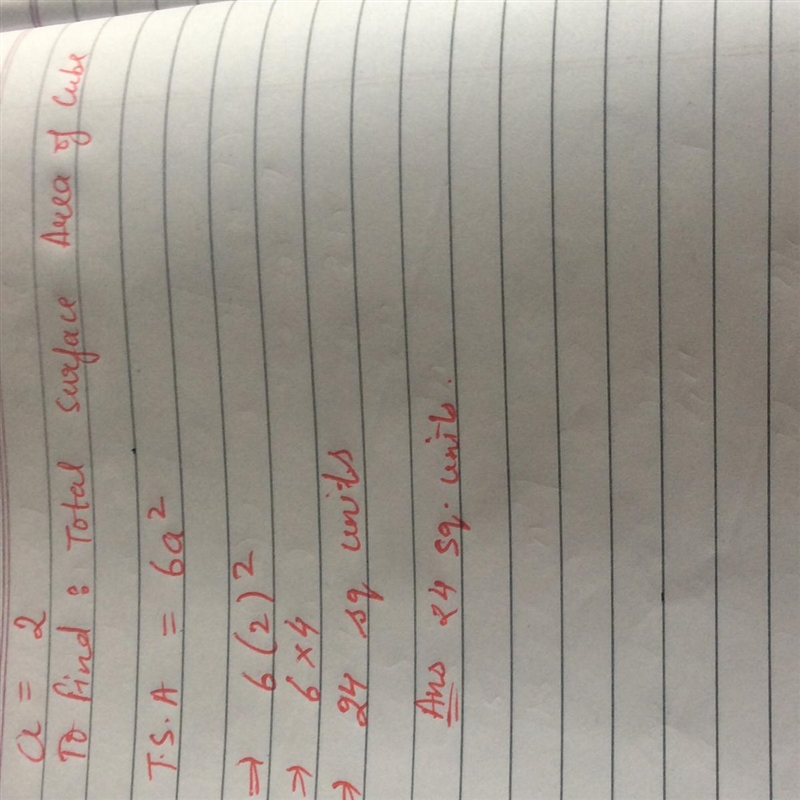 a = 2
To find : Total surface Area of Cube
T.S.A = 6a²
⇒ 6(2)²
⇒ 6×4
⇒ 24 sq units
Ans 24 sq. units.